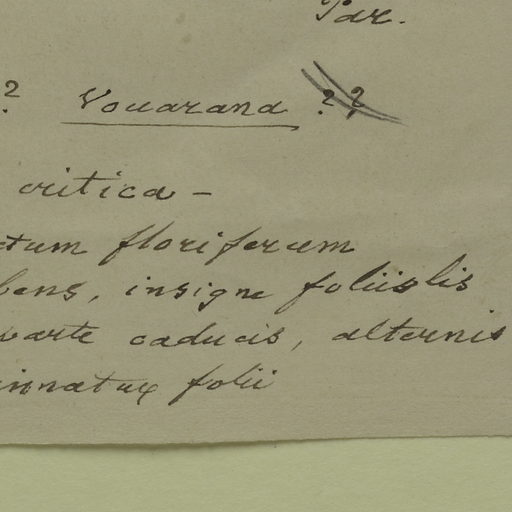 Par.
? Vouarana ??
critica -
ctum floriferum
bens, insigne foliislis
parte caducis, alternis
innatæ folii